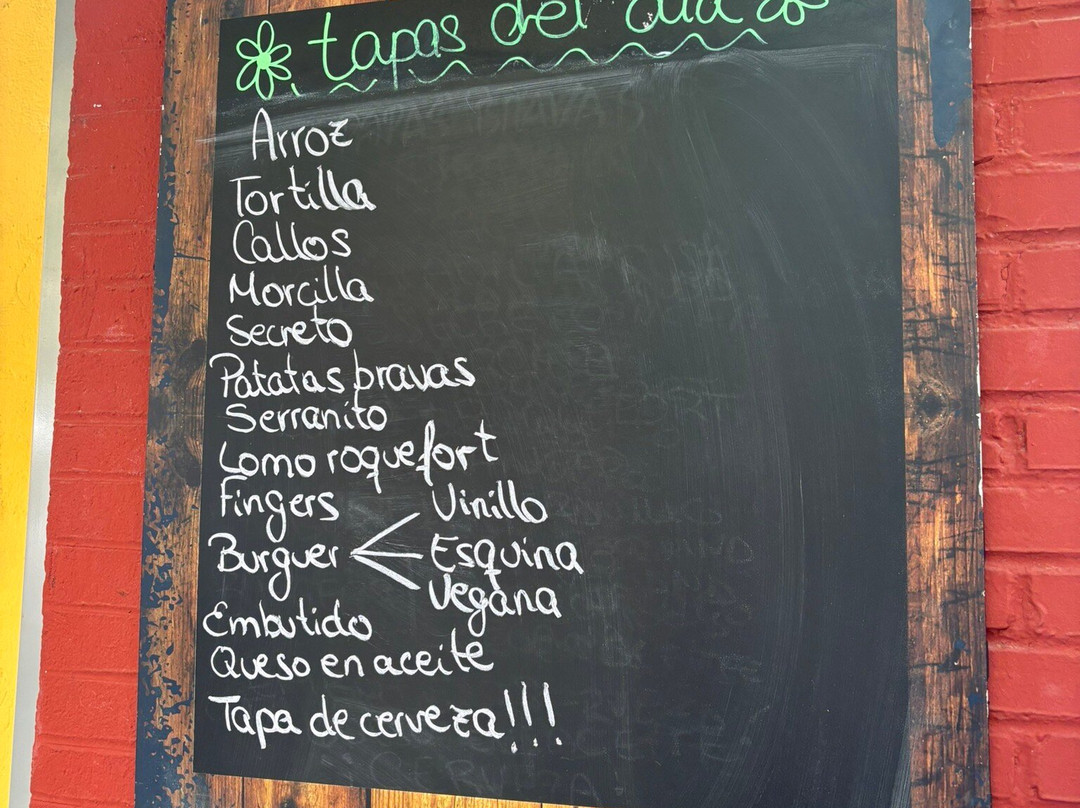 tapas del dia
Arroz
Tortilla
Callos
Morcilla
Secreto
Patatas bravas
Serranito
Lomo roquefort
Fingers
Burguer
Vinillo
Esquina
Vegana
Embutido
Queso en aceite
Tapa de cerveza!!!